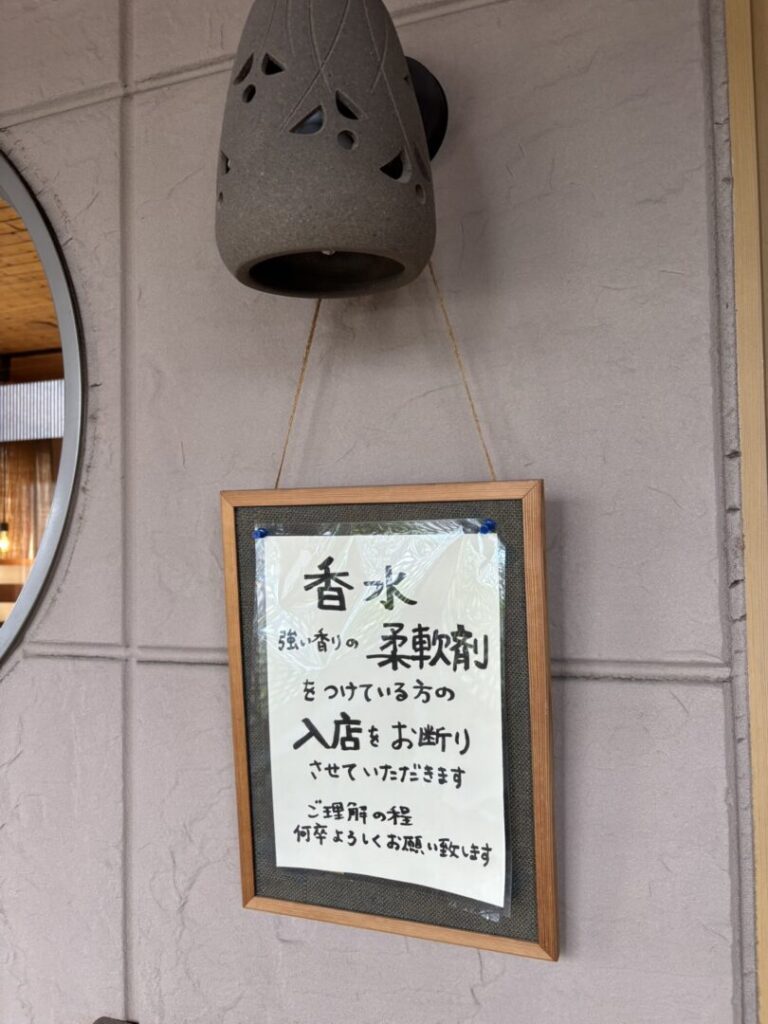 香水
強い香りの 柔軟剤
をつけている方の
入店をお断り
させていただきます
ご理解の程
何卒よろしくお願い致します